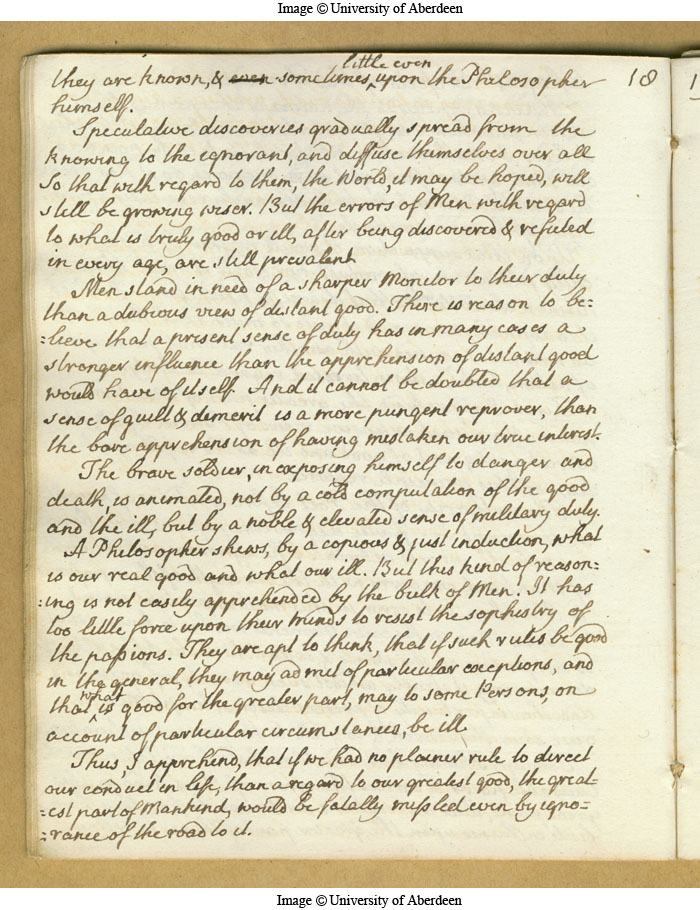 Image © University of Aberdeen
18
they are known, & even sometimes little even upon the Philosopher
himself.
Speculative discoveries gradually spread from the
knowing to the ignorant, and diffuse themselves over all
So that with regard to them, the World, it may be hoped, will
still be growing wiser. But the errors of Men with regard
to what is truly good or ill, after being discovered & refuted
in every age, are still prevalent
Men stand in need of a sharper monitor to their duty
than a dubious view of distant good. There is reason to be=
=lieve that a present sense of duty has in many cases a
stronger influence than the apprehension of distant good
would have of itself. And it cannot be doubted that a
sense of guilt & demerit is a more pungent reprover, than
the bare apprehension of having mistaken our true interest.
The brave soldier, in exposing himself to danger and
death, is animated, not by a cold computation of the good
and the ill, but by a noble & elevated sense of military duty.
A Philosopher shews, by a copious & just induction, what
is our real good and what our ill. But this kind of reason=
=ing is not easily apprehended by the bulk of Men. It has
too little force upon their minds to resist the sophistry of
the passions. They are apt to think, that if such rules be good
in the general, they may admit of particular exceptions, and
that what is good for the greater part, may to some Persons, on
account of particular circumstances, be ill.
Thus, I apprehend, that if we had no plainer rule to direct
our conduct in life, than a regard to our greatest good, the great=
=est part of Mankind, would be fatally missled even by igno=
=rance of the road to it.
Image © University of Aberdeen